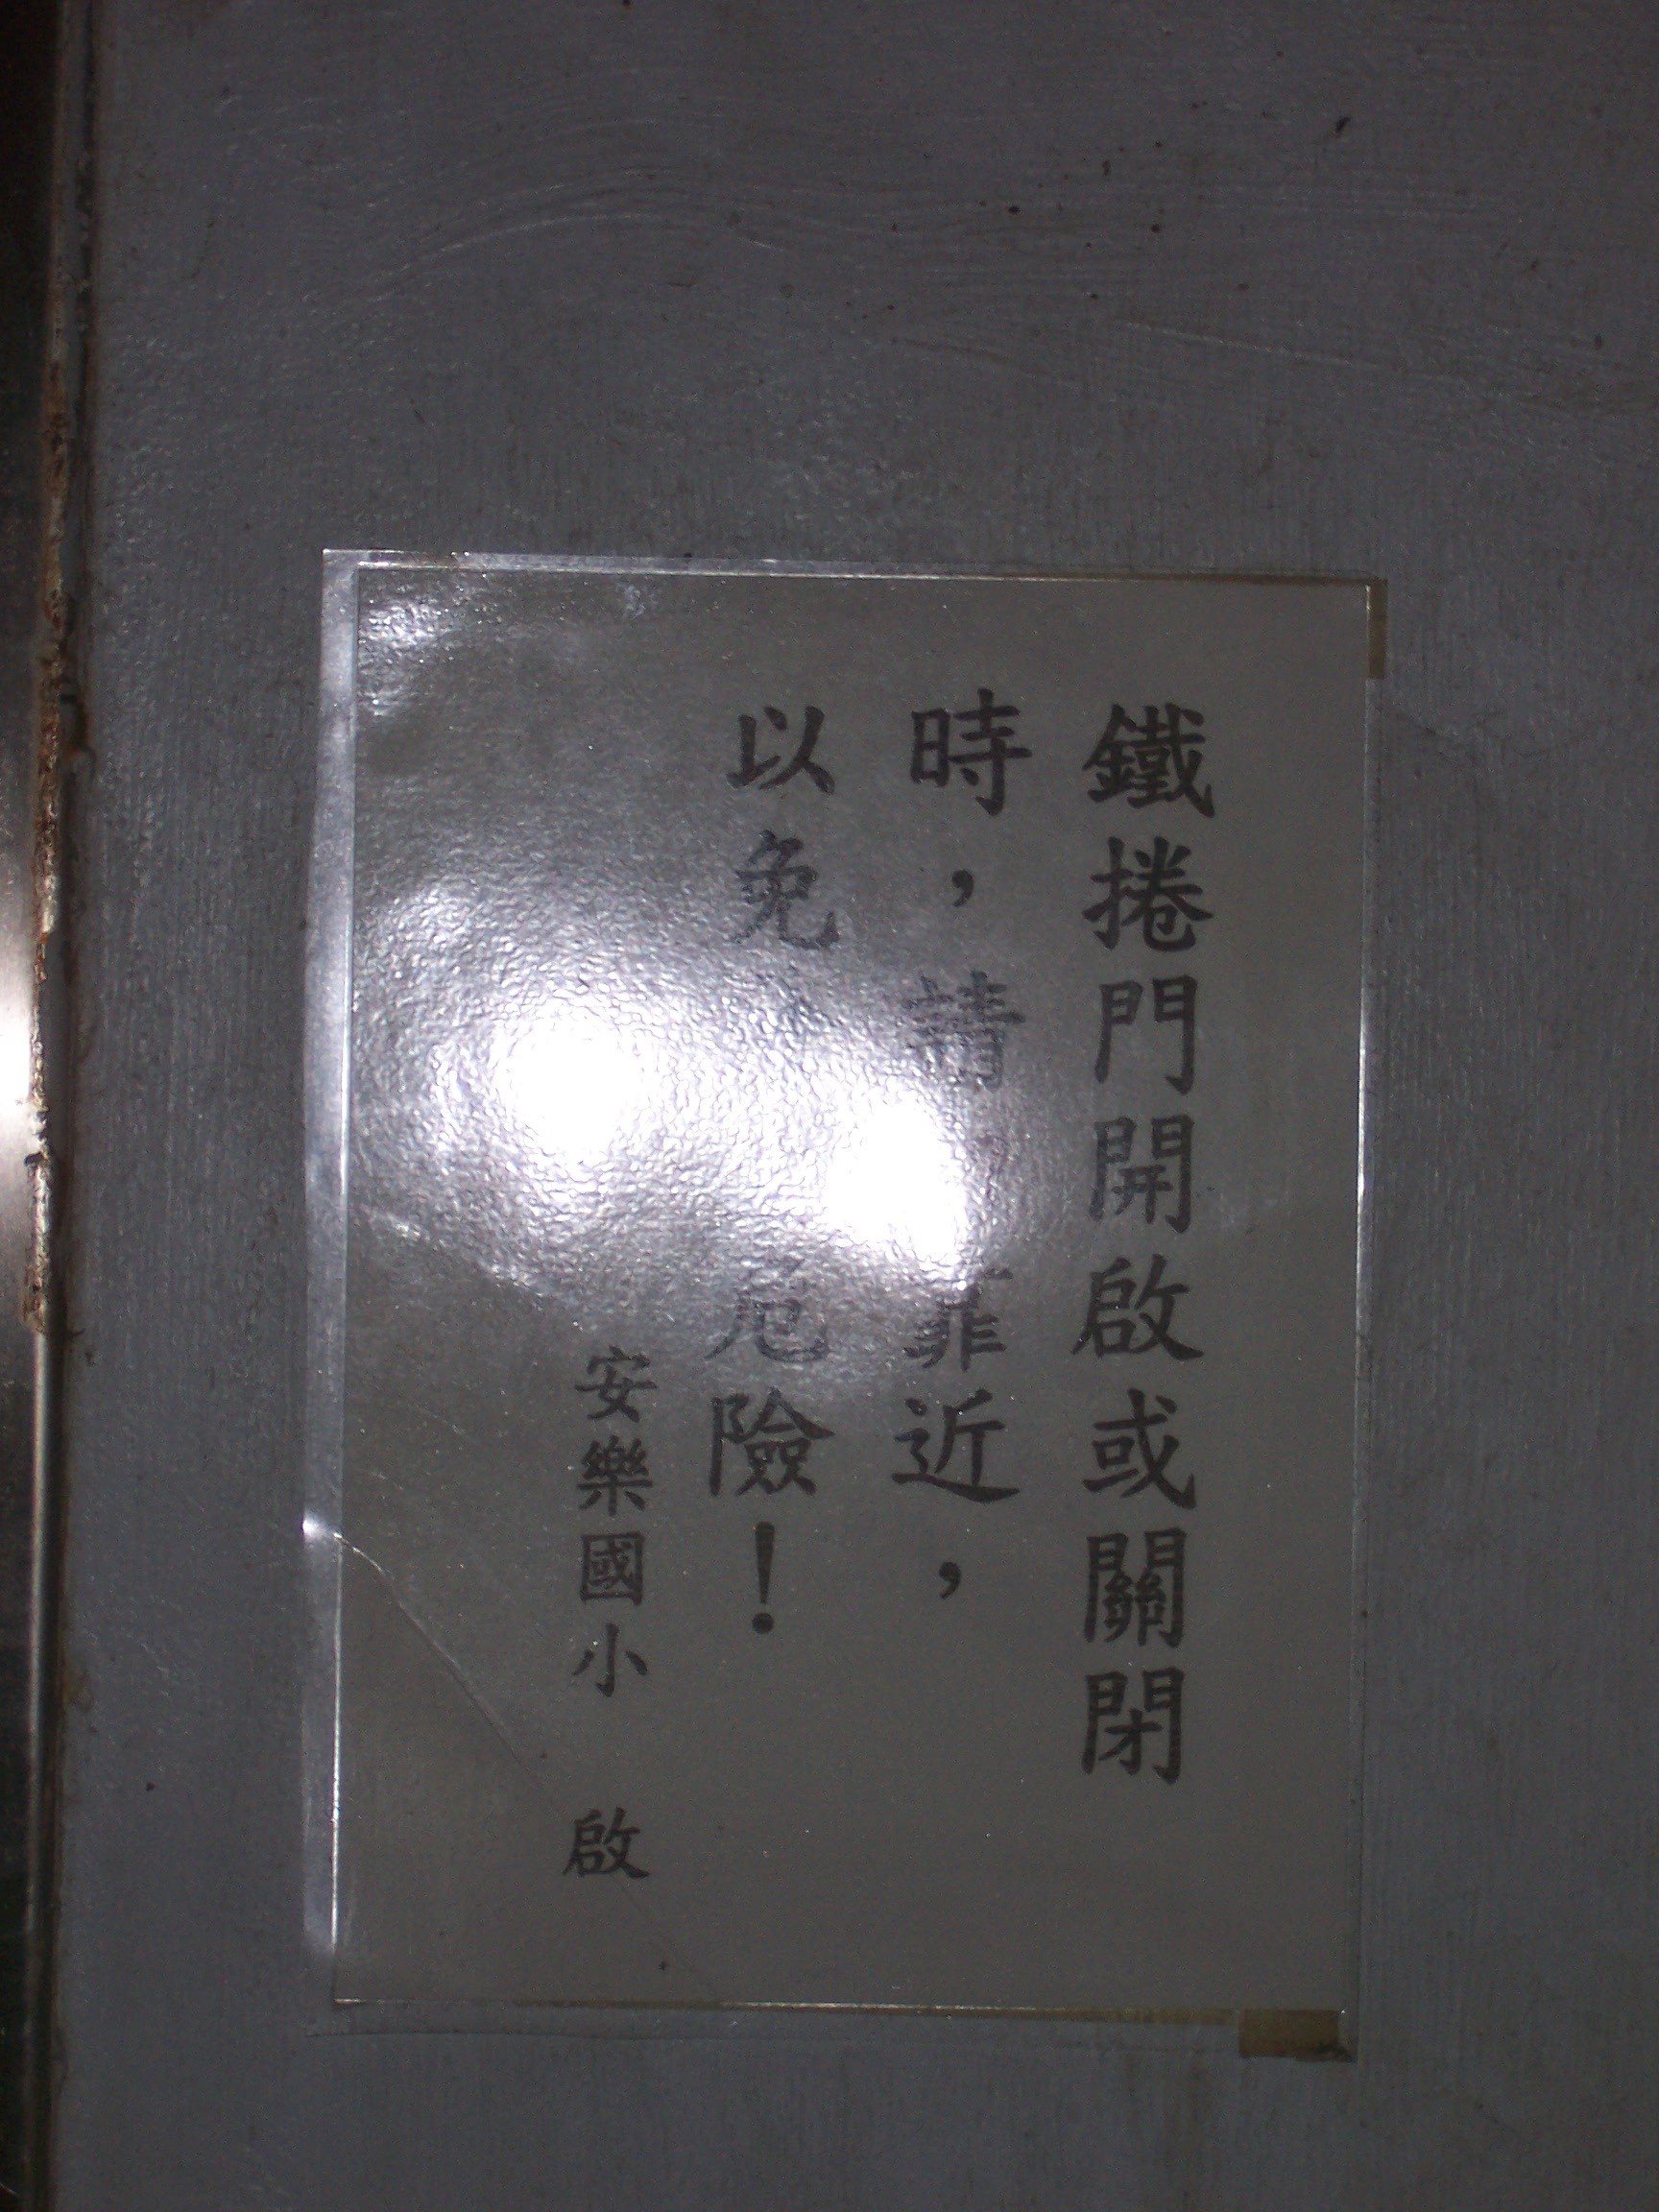 鐵捲門開啟或關閉
時，請靠近，
以免危險！
安樂國小 啟